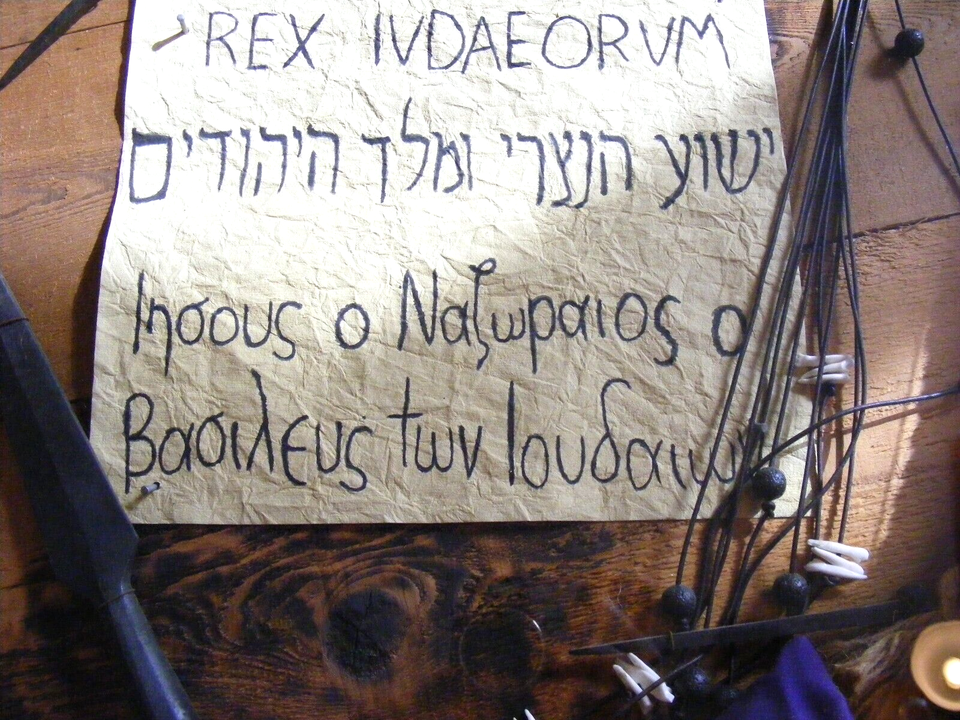 REX IVDAEORVM
ישוע הנצרי ומלך היהודים
Ιησους ο Ναζωραιος ο
βασιλευς των Ιουδαιων